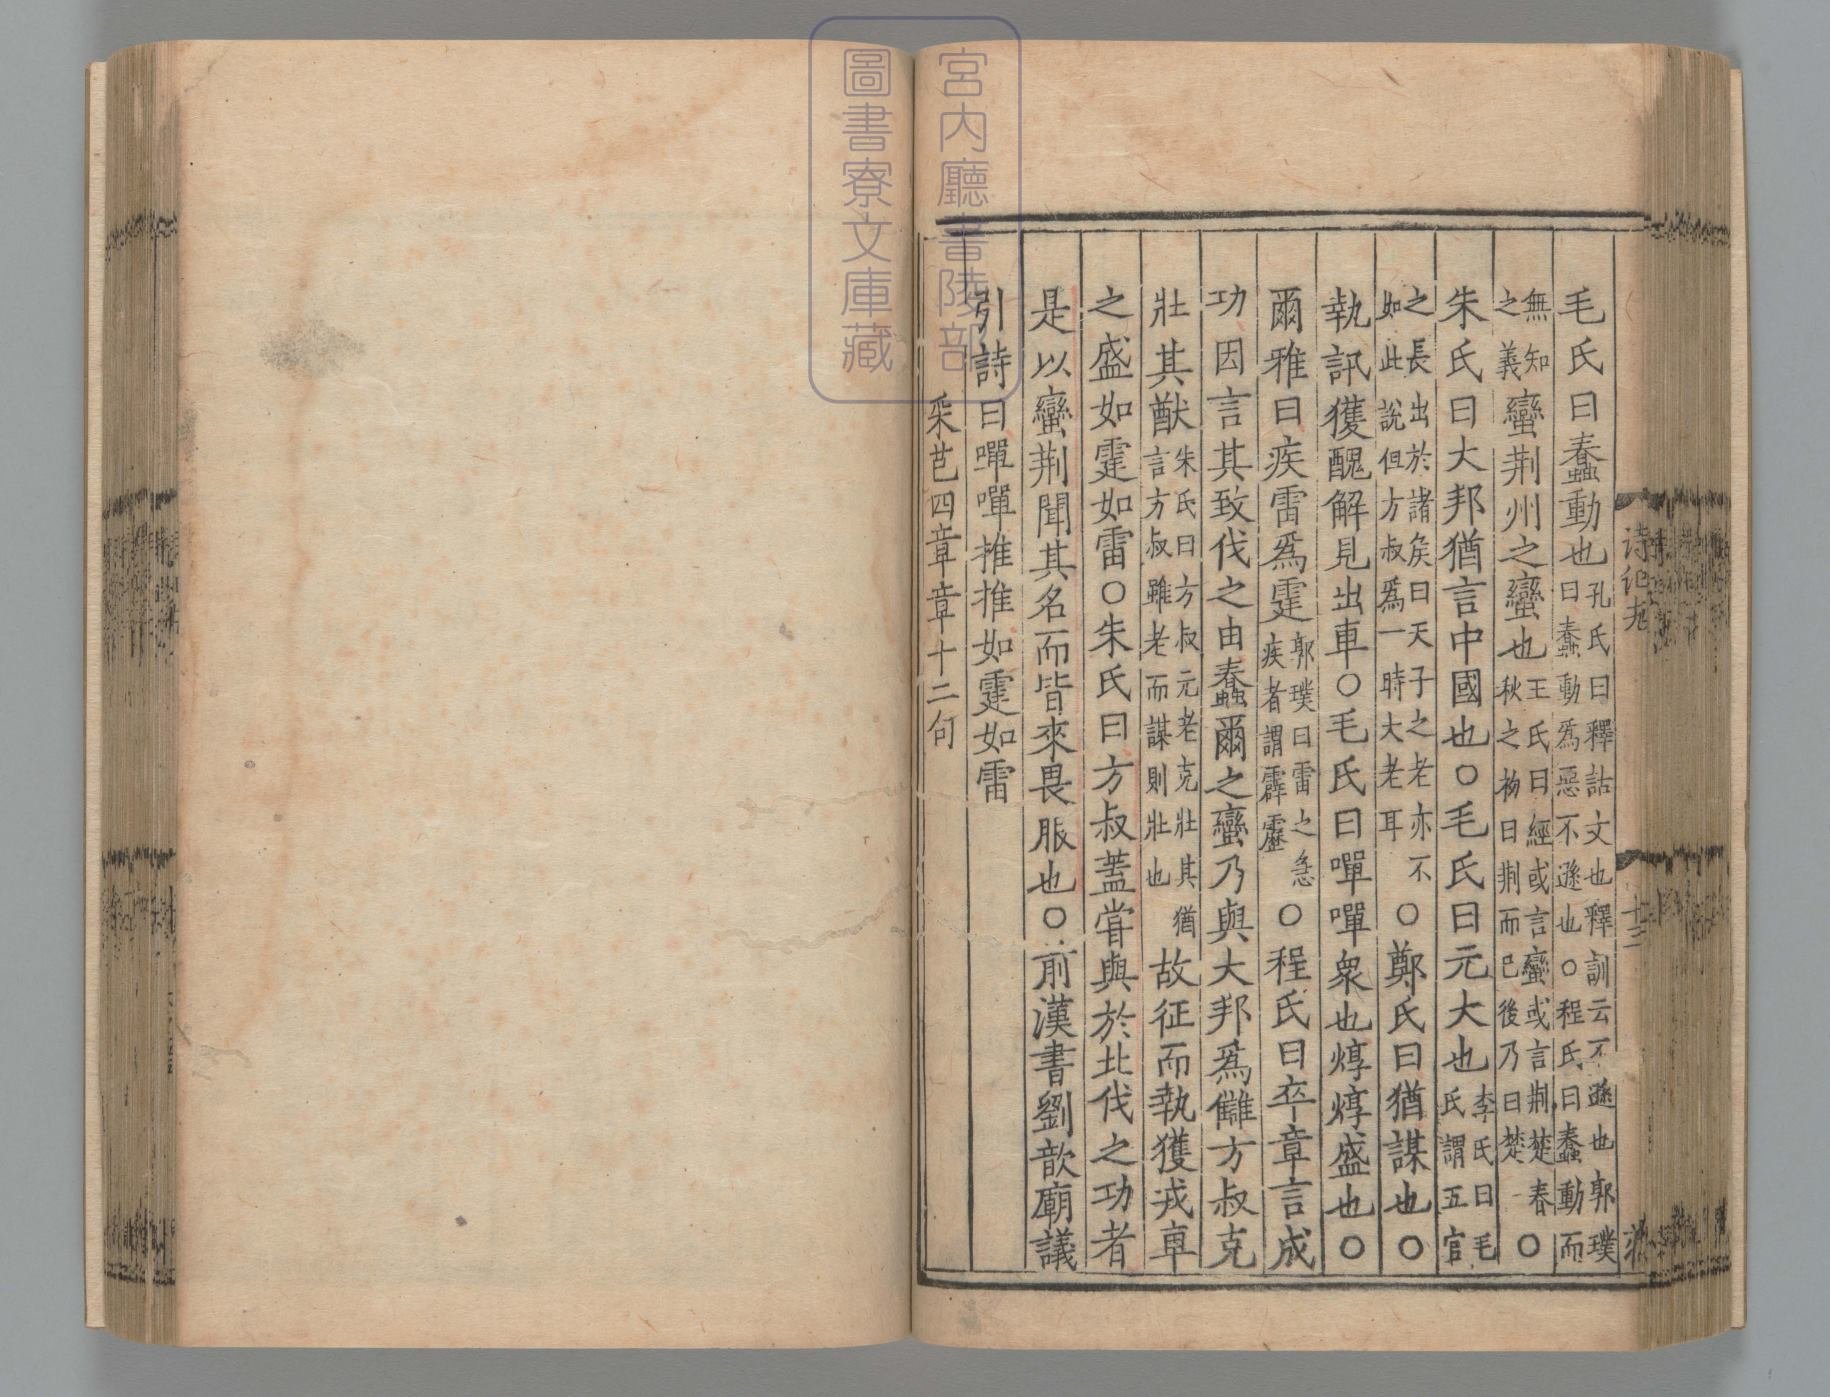 诗纪九
十三
毛氏曰蠢動也孔氏曰釋詁文也釋訓云不遜也郭璞曰蠢動爲惡不遜也○程氏曰蠢動而
無知之義蠻荆州之蠻也王氏曰經或言蠻或言荆楚春秋之初曰荆而已後乃曰楚○
朱氏曰大邦猶言中國也○毛氏曰元大也李氏曰毛氏謂五官
之長出於諸矦曰天子之老亦不如此說但方叔爲一時大老耳○鄭氏曰猶謀也○
執訊獲醜解見出車○毛氏曰嘽嘽衆也焞焞盛也○
爾雅曰疾雷爲霆郭璞曰雷之急疾者謂霹靂○程氏曰卒章言成
功因言其致伐之由蠢爾之蠻乃與大邦爲讎方叔克
壯其猷朱氏曰方叔元老克壯其猶言方叔雖老而謀則壯也故征而執獲戎車
之盛如霆如雷○朱氏曰方叔蓋嘗與於北伐之功者
是以蠻荆聞其名而皆來畏服也○前漢書劉歆廟議
引詩曰嘽嘽推推如霆如雷
采芑四章章十二句
宮内廳書陵部
圖書寮文庫藏